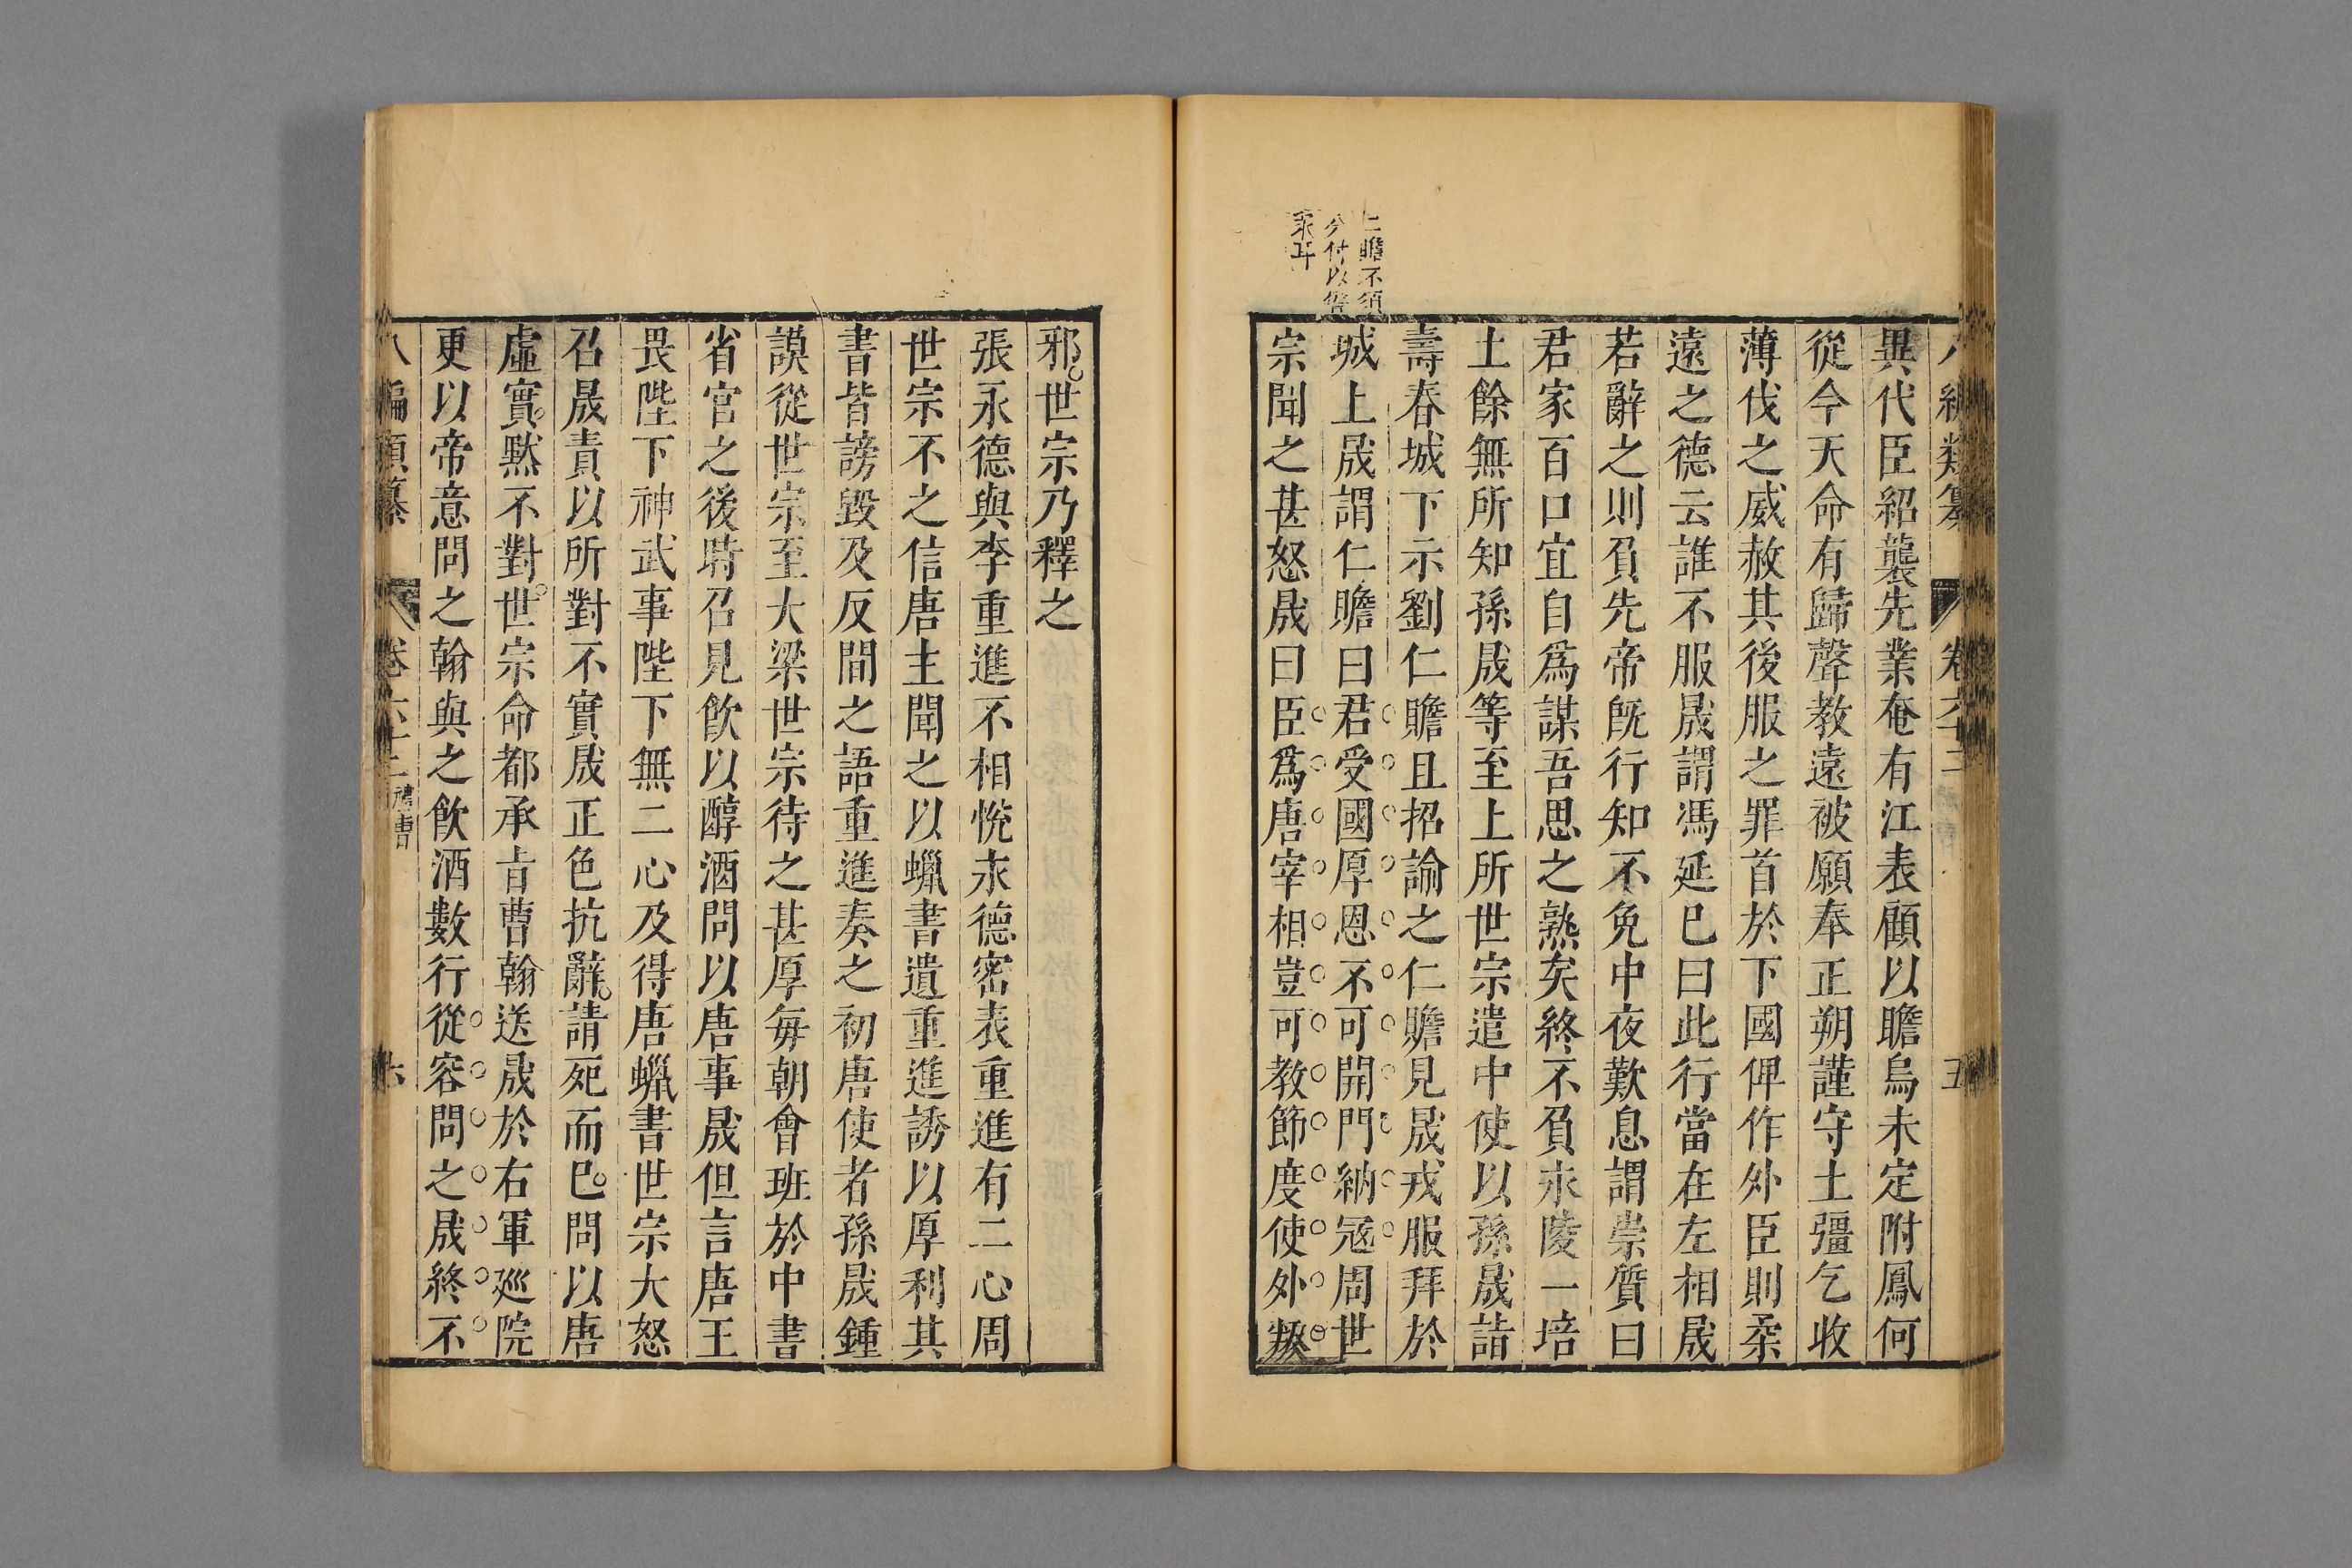 仁瞻不須
分付以答
衆耳
八編類纂 卷六十二 五
異代臣紹襲先業奄有江表顧以瞻烏未定附鳳何
從今天命有歸聲教遠被願奉正朔謹守土彊乞收
薄伐之威赦其後服之罪首於下國俾作外臣則柔
遠之德云誰不服晟謂馮延巳曰此行當在左相晟
若辭之則負先帝旣行知不免中夜歎息謂崇質曰
君家百口宜自爲謀吾思之熟矣終不負永陵一培
土餘無所知孫晟等至上所世宗遣中使以孫晟詣
壽春城下示劉仁贍且招諭之仁贍見晟戎服拜於
城上晟謂仁贍曰君受國厚恩不可開門納寇周世
宗聞之甚怒晟曰臣爲唐宰相豈可教節度使外叛
邪世宗乃釋之
張永德與李重進不相悅永德密表重進有二心周
世宗不之信唐主聞之以蠟書遺重進誘以厚利其
書皆謗毀及反間之語重進奏之初唐使者孫晟鍾
謨從世宗至大梁世宗待之甚厚每朝會班於中書
省官之後時召見飮以醇酒問以唐事晟但言唐王
畏陛下神武事陛下無二心及得唐蠟書世宗大怒
召晟責以所對不實晟正色抗辭請死而已問以唐
虛實默不對世宗命都承旨曹翰送晟於右軍廵院
更以帝意問之翰與之飮酒數行從容問之晟終不
八編類纂 卷六十二 禮曹 六